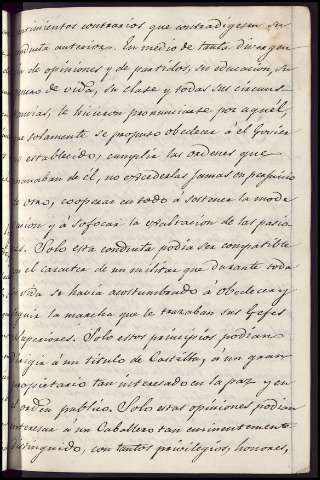 sentimientos contrarios que contradigesen su
conducta anterior. En medio de tanta divergen
de opiniones y de partidos, su educacion, su
genero de vida, su clase y todas sus circuns
tancias, le hicieron pronunciarse por aquel,
que solamente se propuso obedecer á él Govier
no establecido, cumplir las ordenes que
emanaban de él, no excederlas jamas en perjuicio
de otro, cooperar en todo á sostener la mode
racion y á sofocar la exaltacion de las pasio
nes. Solo esta conducta podia ser compatible
con el caracter de un militar que durante toda
su vida se havia acostumbrado á obedecer y
seguir la marcha que le trazaban sus Gefes
superiores. Solo estos principios podian
dirigir á un titulo de Castilla, á un gran
propietario tan interesado en la paz y en
el orden publico. Solo estas opiniones podian
interesar á un Caballero tan eminentemente
distinguido, con tantos privilegios, honores,